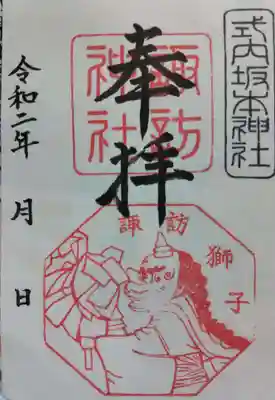 式内坂本神社
奉拝
諏訪
神社
令和二年 月 日
諏訪
獅子